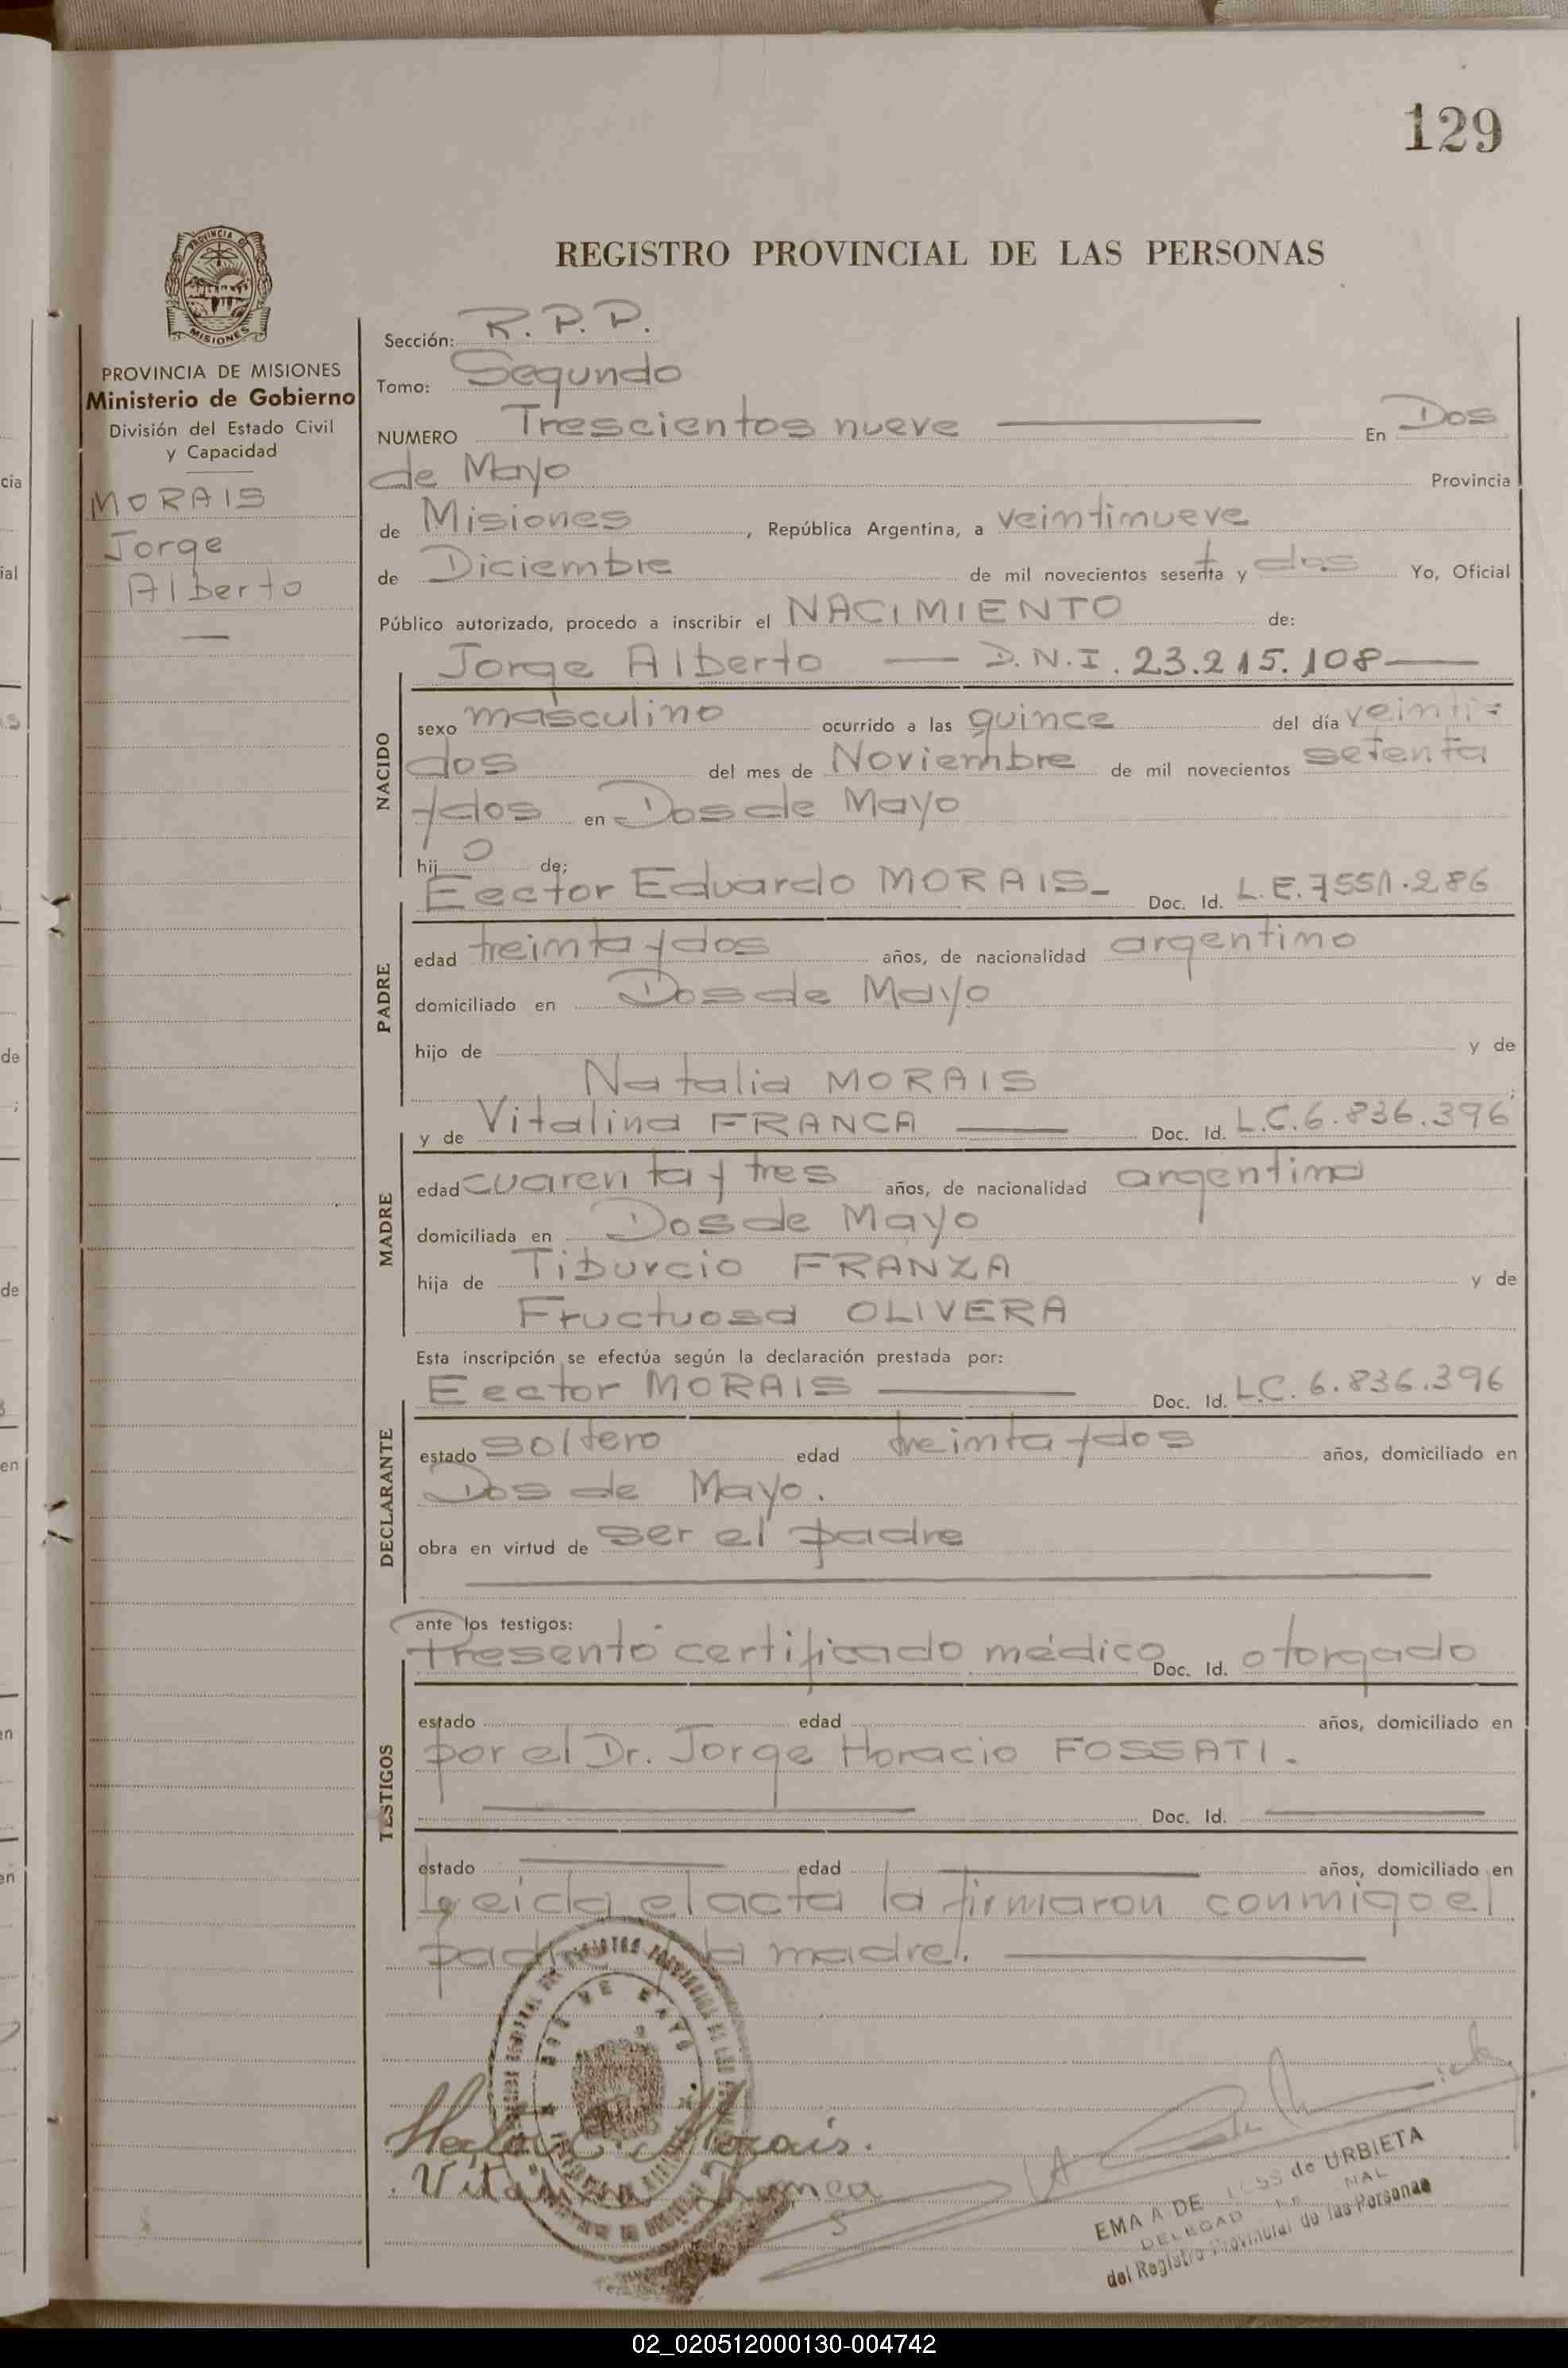 129
REGISTRO PROVINCIAL DE LAS PERSONAS
PROVINCIA DE MISIONES
PROVINCIA DE MISIONES
Ministerio de Gobierno
División del Estado Civil
y Capacidad
MORAIS
Jorge
Alberto
Sección: R.P.P.
Tomo: Segundo
NUMERO Trescientos nueve En Dos
de Mayo Provincia
de Misiones, República Argentina, a veintinueve
de Diciembre de mil novecientos sesenta y dos Yo, Oficial
Público autorizado, procedo a inscribir el NACIMIENTO de:
Jorge Alberto — D.N.I. 23.215.108 —
NACIDO
sexo masculino ocurrido a las quince del día veinti=
dos del mes de Noviembre de mil novecientos setenta
y dos en Dos de Mayo
hijo de;
Eector Eduardo MORAIS- Doc. Id. L.E. 7551.286
PADRE
edad treinta y dos años, de nacionalidad argentino
domiciliado en Dos de Mayo
hijo de y de
Natalia MORAIS
y de Vitalina FRANCA — Doc. Id. L.C. 6.836.396
MADRE
edad cuarenta y tres años, de nacionalidad argentina
domiciliada en Dos de Mayo
hija de Tiburcio FRANZA y de
Fructuosa OLIVERA
Esta inscripción se efectúa según la declaración prestada por:
Eector MORAIS — Doc. Id. L.C. 6.836.396
DECLARANTE
estado soltero edad treinta y dos años, domiciliado en
Dos de Mayo.
obra en virtud de ser el padre
ante los testigos:
Presentó certificado médico Doc. Id. otorgado
TESTIGOS
estado edad años, domiciliado en
por el Dr. Jorge Horacio FOSSATI.
Doc. Id.
estado edad años, domiciliado en
Leida el acta la firmaron conmigo el
padre y la madre.
Hector E. Morais.
Vitalina Franca
EMA A DE de URBIETA
DELEGAD NAL
del Registro Provincial de las Personas
02_020512000130-004742